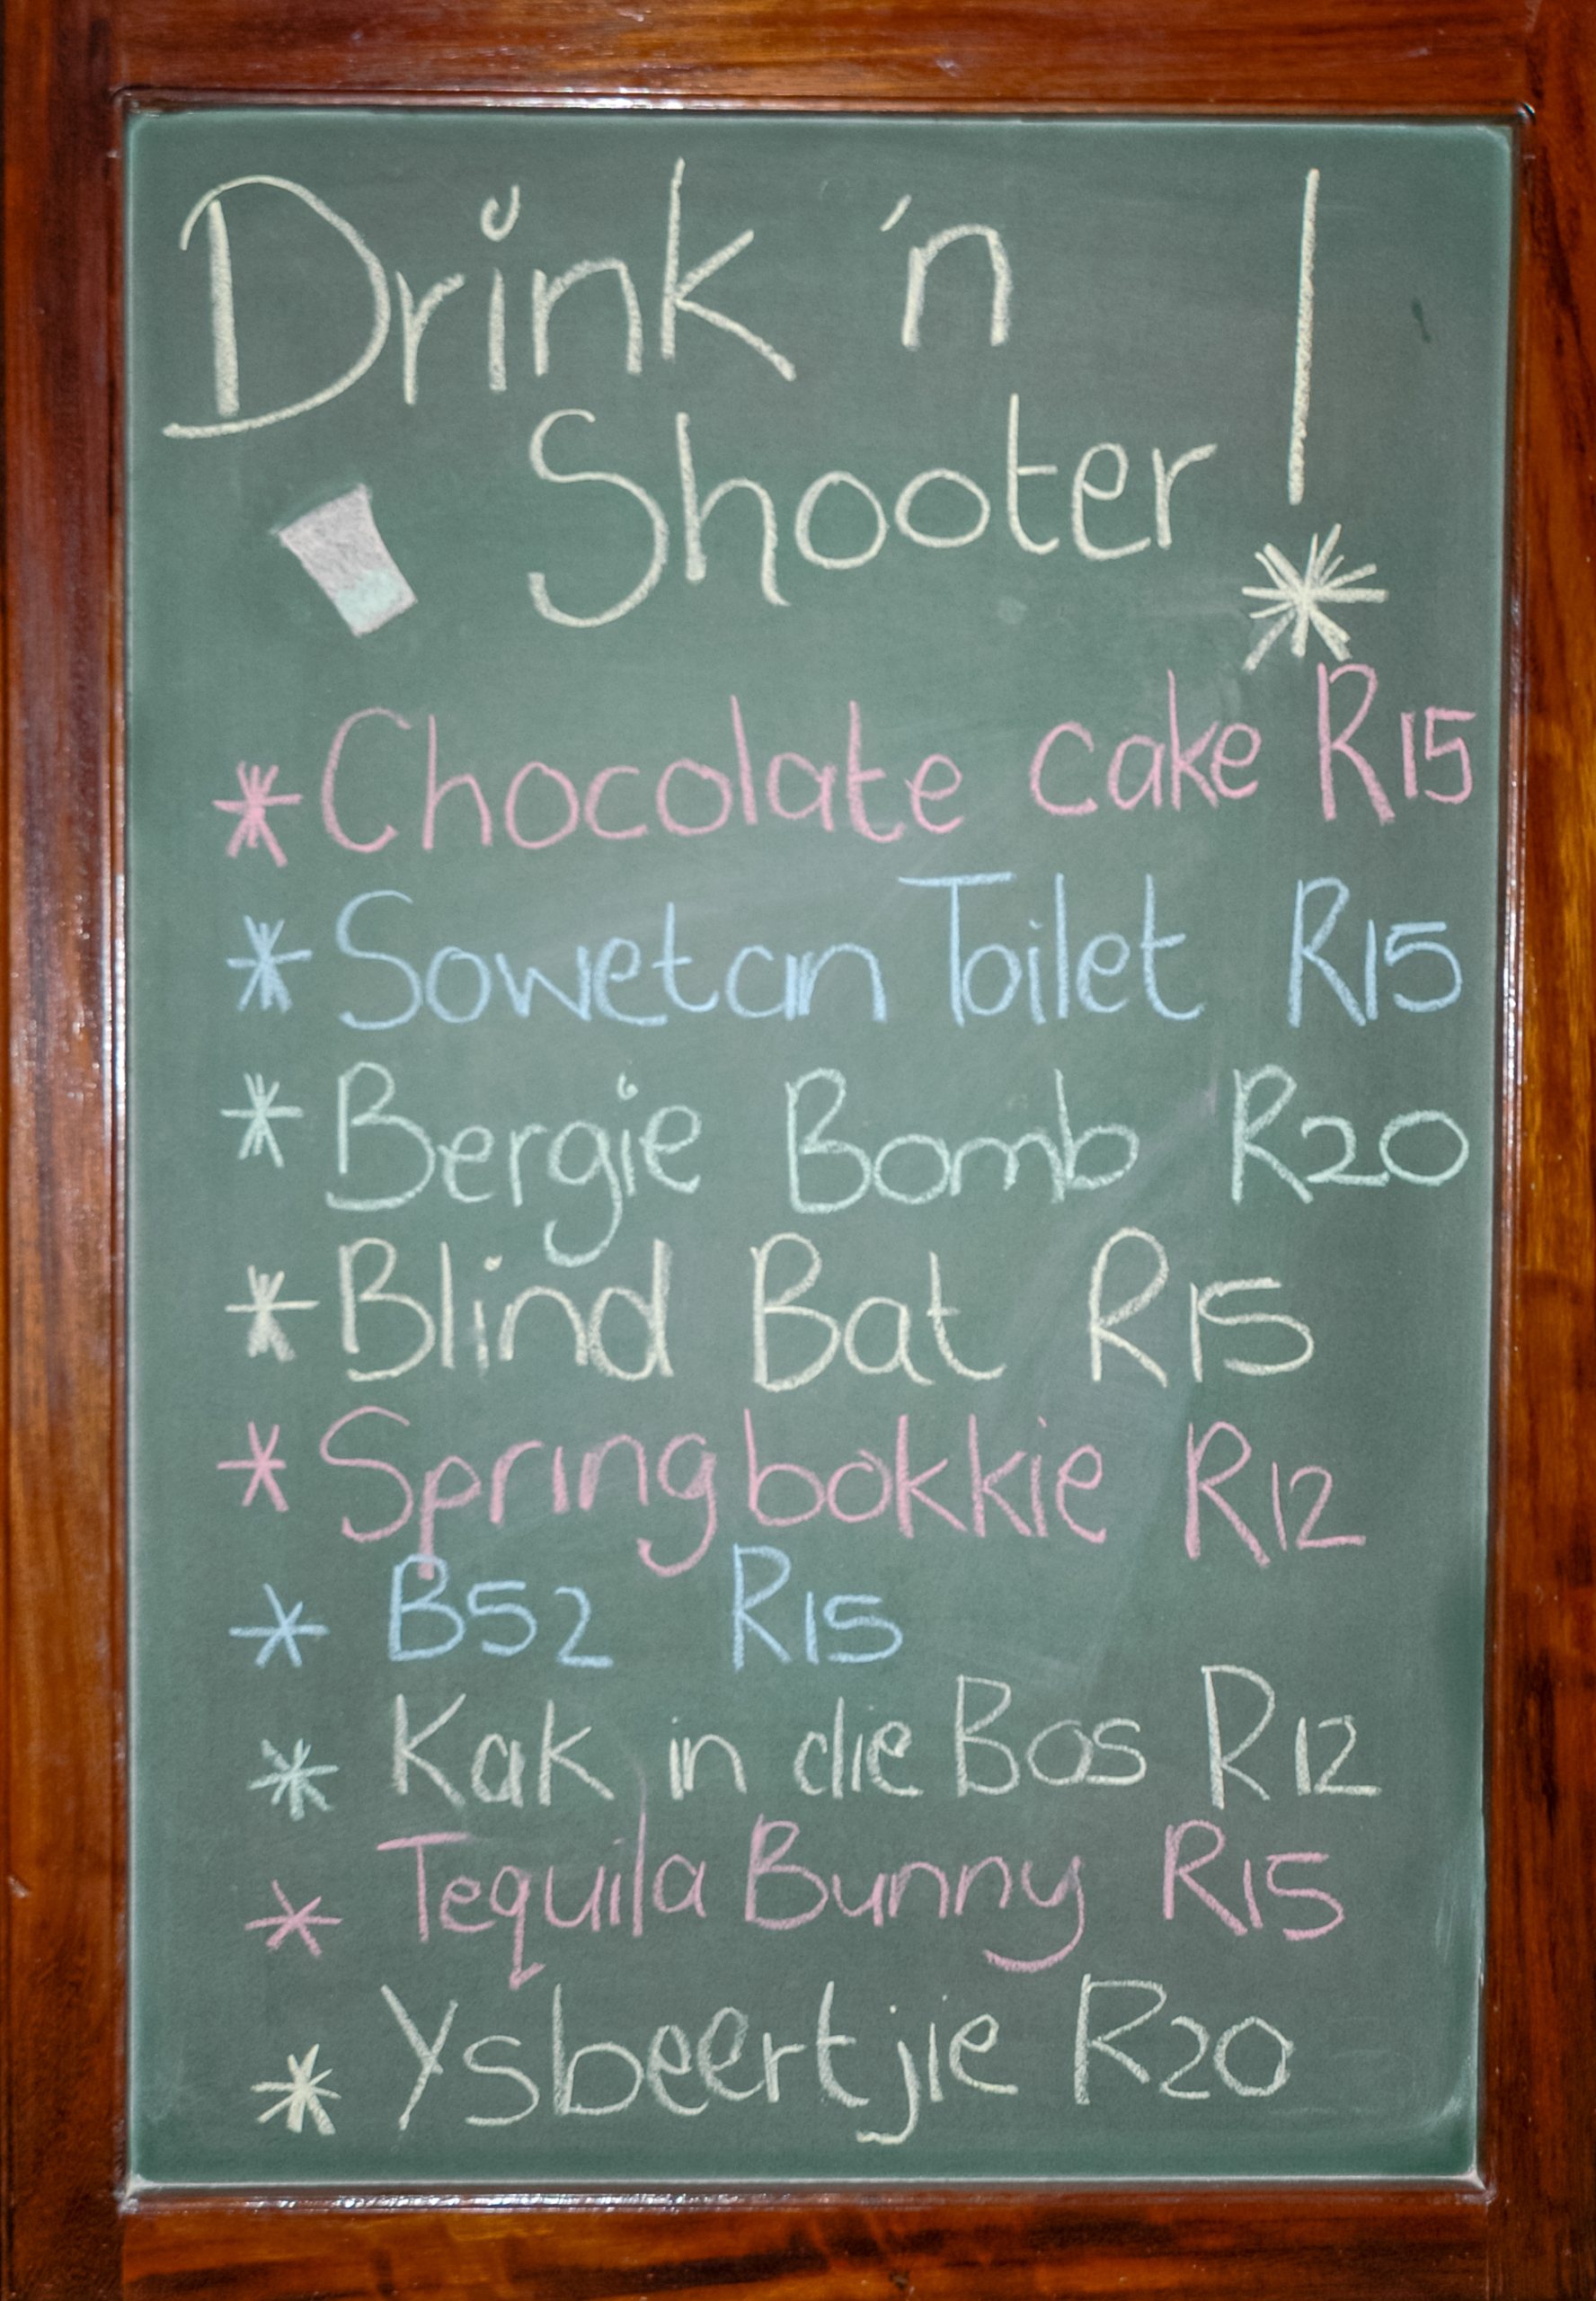 Drink 'n
Shooter!
* Chocolate cake R15
* Sowetan Toilet R15
* Bergie Bomb R20
* Blind Bat R15
* Springbokkie R12
* B52 R15
* Kak in die Bos R12
* Tequila Bunny R15
* Ysbeertjie R20